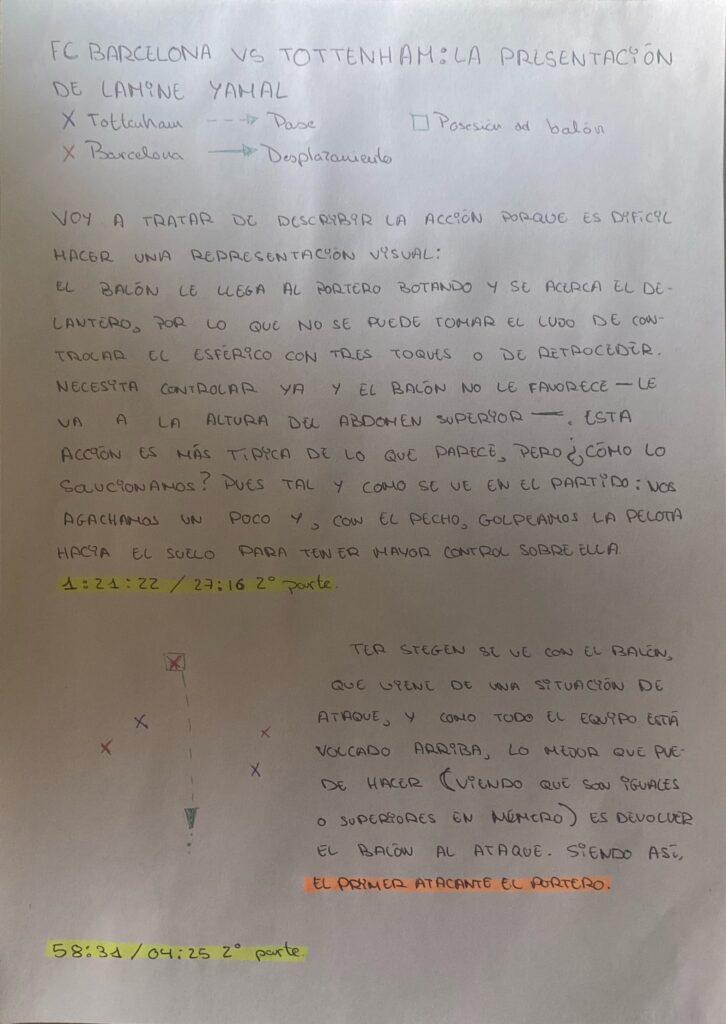 FC BARCELONA VS TOTTENHAM: LA PRESENTACIÓN
DE LAMINE YAMAL
X Tottenham ---> Pase □ Posesión del balón
X Barcelona → Desplazamiento
VOY A TRATAR DE DESCRIBIR LA ACCIÓN PORQUE ES DIFICIL
HACER UNA REPRESENTACIÓN VISUAL:
EL BALÓN LE LLEGA AL PORTERO BOTANDO Y SE ACERCA EL DE-
LANTERO, POR LO QUE NO SE PUEDE TOMAR EL LUJO DE CON-
TROLAR EL ESFÉRICO CON TRES TOQUES O DE RETROCEDER.
NECESITA CONTROLAR YA Y EL BALÓN NO LE FAVORECE — LE
VA A LA ALTURA DEL ABDOMEN SUPERIOR —. ESTA
ACCIÓN ES MÁS TÍPICA DE LO QUE PARECE, PERO ¿CÓMO LO
SOLUCIONAMOS? PUES TAL Y COMO SE VE EN EL PARTIDO: NOS
AGACHAMOS UN POCO Y, CON EL PECHO, GOLPEAMOS LA PELOTA
HACIA EL SUELO PARA TENER MAYOR CONTROL SOBRE ELLA.
1:21:22 / 27:16 2º parte.
TER STEGEN SE VE CON EL BALÓN,
QUE VIENE DE UNA SITUACIÓN DE
ATAQUE, Y COMO TODO EL EQUIPO ESTÁ
VOLCADO ARRIBA, LO MEJOR QUE PUE-
DE HACER (VIENDO QUE SON IGUALES
O SUPERIORES EN NÚMERO) ES DEVOLVER
EL BALÓN AL ATAQUE. SIENDO ASÍ,
EL PRIMER ATACANTE EL PORTERO.
58:31 / 04:25 2º parte.